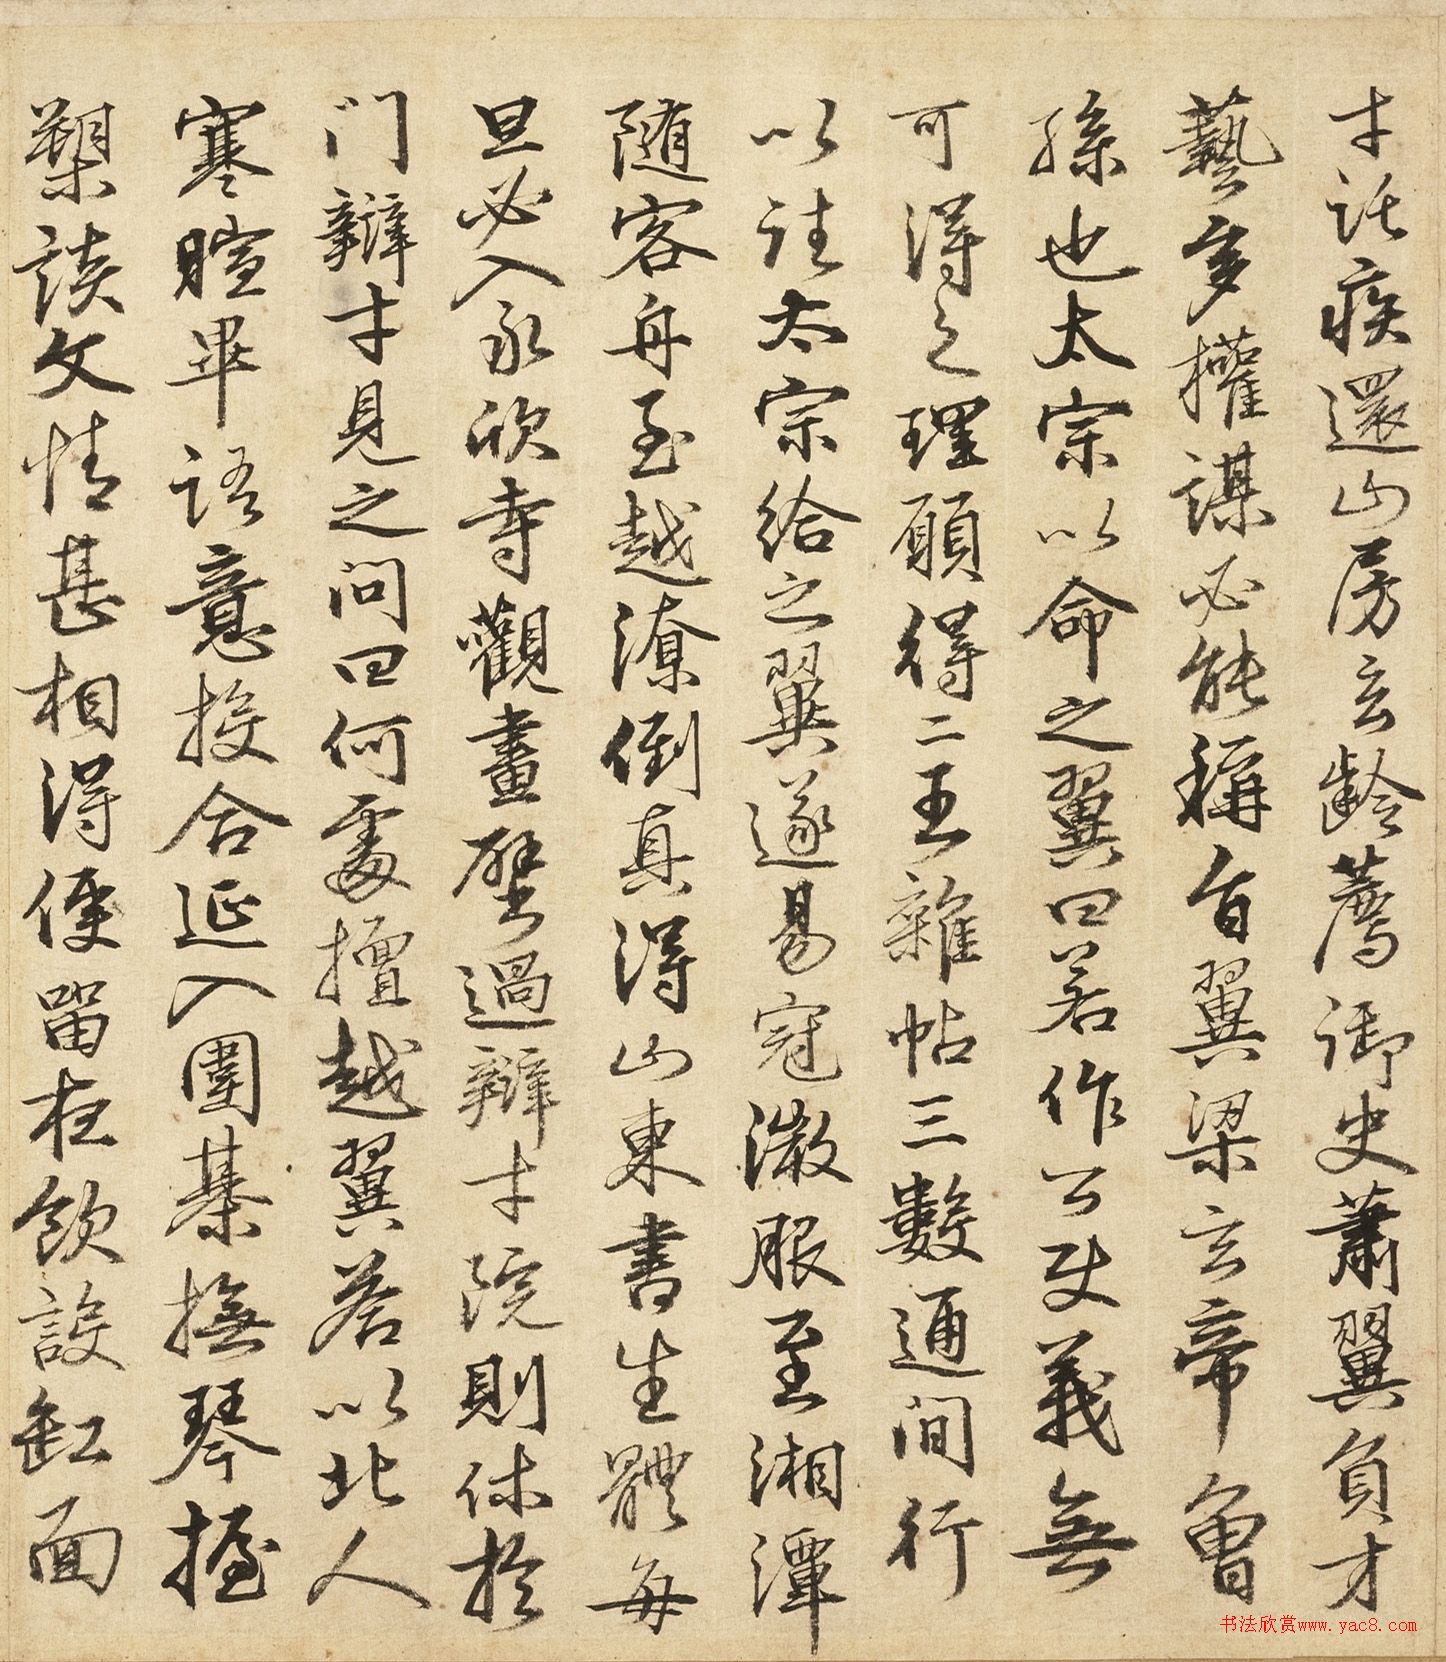 才託疾還山房玄齡薦御史蕭翼負才
藝多權謀必能稱旨翼梁玄帝曾
孫也太宗以命之翼曰若作公使義無
可得之理願得二王雜帖三數通間行
以往太宗給之翼遂易冠微服至湘潭
随客舟至越潦倒真得山東書生體每
旦必入永欣寺觀畫壁過辯才院則休於
门辯才見之問曰何處擅越翼答以北人
寒暄畢語意投合延入圍棊撫琴握
槊談文情甚相得便留在飲設缸面
书法欣赏www.yac8.com